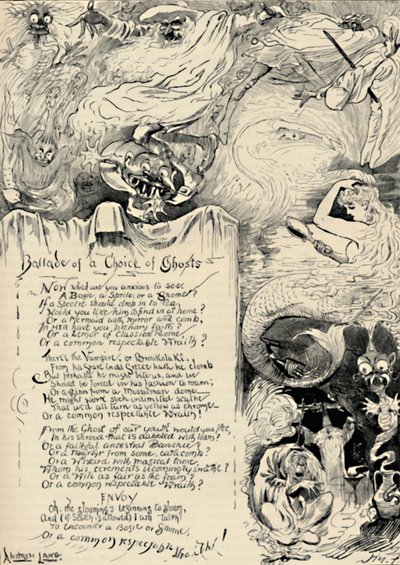 Ballade of a Choice of Ghosts
Now which are you anxious to see,
A Bogie, a Sprite, or a Gnome?
If a Spectre should drop in to tea,
Would you like him to find us at home?
Or a Mermaid with mirror and comb,
In have you plenary faith?
Or a Lemur of Classical Rome
Or a common respectable Wraith?
There's the Vampire, or Broukolaki
From his grave in Greece he clomb
But perhaps he might bite us, and we
Should be forced in his fashion to roam;
Or a Djinn from a Mussulman dome
He might work such unlimited scathe
That we'd all turn as yellow as chrome
Or a common respectable Wraith!
From the Ghost of our youth would you flee,
In his shroud that is dabbled with loam?
Or a faithful ancestral Banshee?
Or a martyr from some catacomb?
Or a with magical tome
Whom his cerements becomingly swathe?
Or a Wili as fair as the foam?
Or a common respectable Wraith?
ENVOY
Oh, the gloaming's beginning to gloam,
And (if Seven is allowed) I am "laith"
To encounter a Bogie or Gnome,
Or a common respectable Wraith!
Andrew Lang.